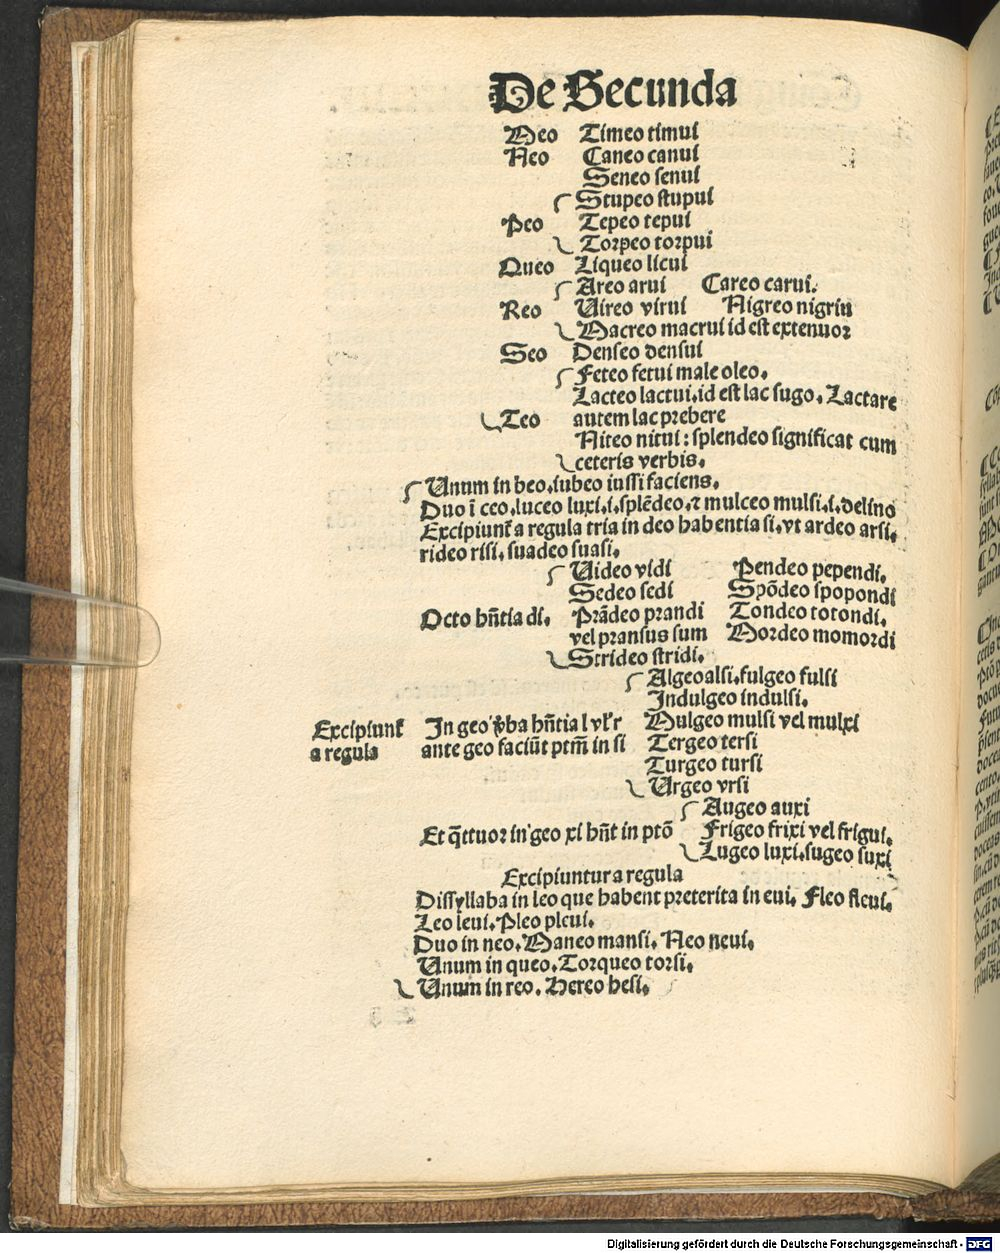 De Secunda
Meo Timeo timui
Neo Caneo canui
Seneo senui
Stupeo stupui
Peo Tepeo tepui
Torpeo torpui
Queo Liqueo licui
Areo arui Careo carui.
Reo Uireo virui Nigreo nigrui
Macreo macrui id est extenuor
Seo Denseo densui
Feteo fetui male oleo.
Lacteo lactui.id est lac sugo. Lactare
Teo autem lac prebere
Niteo nitui: splendeo significat cum
ceteris verbis.
Unum in beo.iubeo iussi faciens.
Duo ī ceo.luceo luxi.i.splēdeo.⁊ mulceo mulsi.i.delino
Excipiunt᷑ a regula tria in deo habentia si.vt ardeo arsi.
rideo risi.suadeo suasi.
Uideo vidi Pendeo pependi.
Sedeo sedi Spōdeo spopondi
Octo hñtia di. Prādeo prandi Tondeo totondi.
vel pransus sum Mordeo momordi
Strideo stridi.
Algeo alsi.fulgeo fulsi
Indulgeo indulsi.
Excipiunt᷑ In geo v̓ba hñtia l vl̓ r Mulgeo mulsi vel mulxi
a regula ante geo faciūt ptm̄ in si Tergeo tersi
Turgeo tursi
Urgeo vrsi
Augeo auxi
Et q̄ttuor in geo xi hñt in ptō Frigeo frixi vel frigui.
Lugeo luxi.sugeo suxi
Excipiuntur a regula
Dissyllaba in leo que habent preterita in eui. Fleo fleui.
Leo leui. Pleo pleui.
Duo in neo. Maneo mansi. Neo neui.
Unum in queo. Torqueo torsi.
Unum in reo. Hereo hesi.
Digitalisierung gefördert durch die Deutsche Forschungsgemeinschaft - DFG